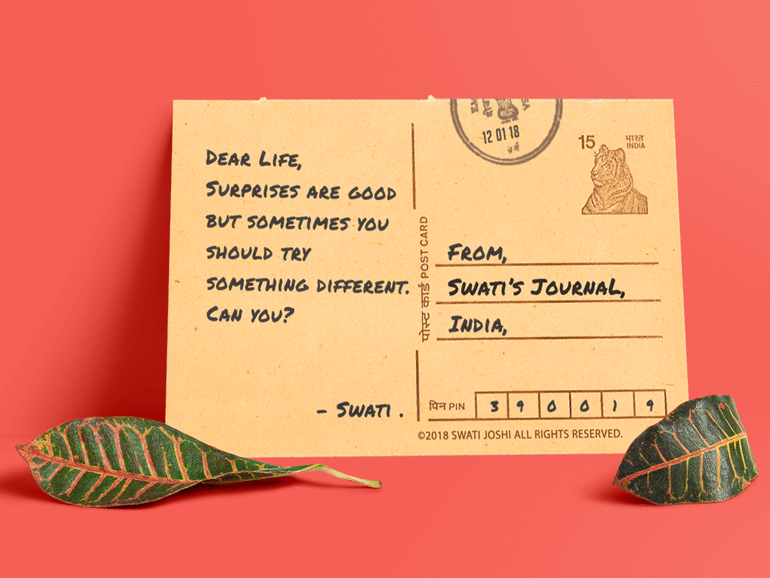 DEAR LIFE,
SURPRISES ARE GOOD
BUT SOMETIMES YOU
SHOULD TRY
SOMETHING DIFFERENT.
CAN YOU?
- SWATI .
पोस्ट कार्ड POST CARD
12 01 18
15 भारत
INDIA
FROM,
SWATI'S JOURNAL,
INDIA,
पिन PIN 3 9 0 0 1 9
©2018 SWATI JOSHI ALL RIGHTS RESERVED.